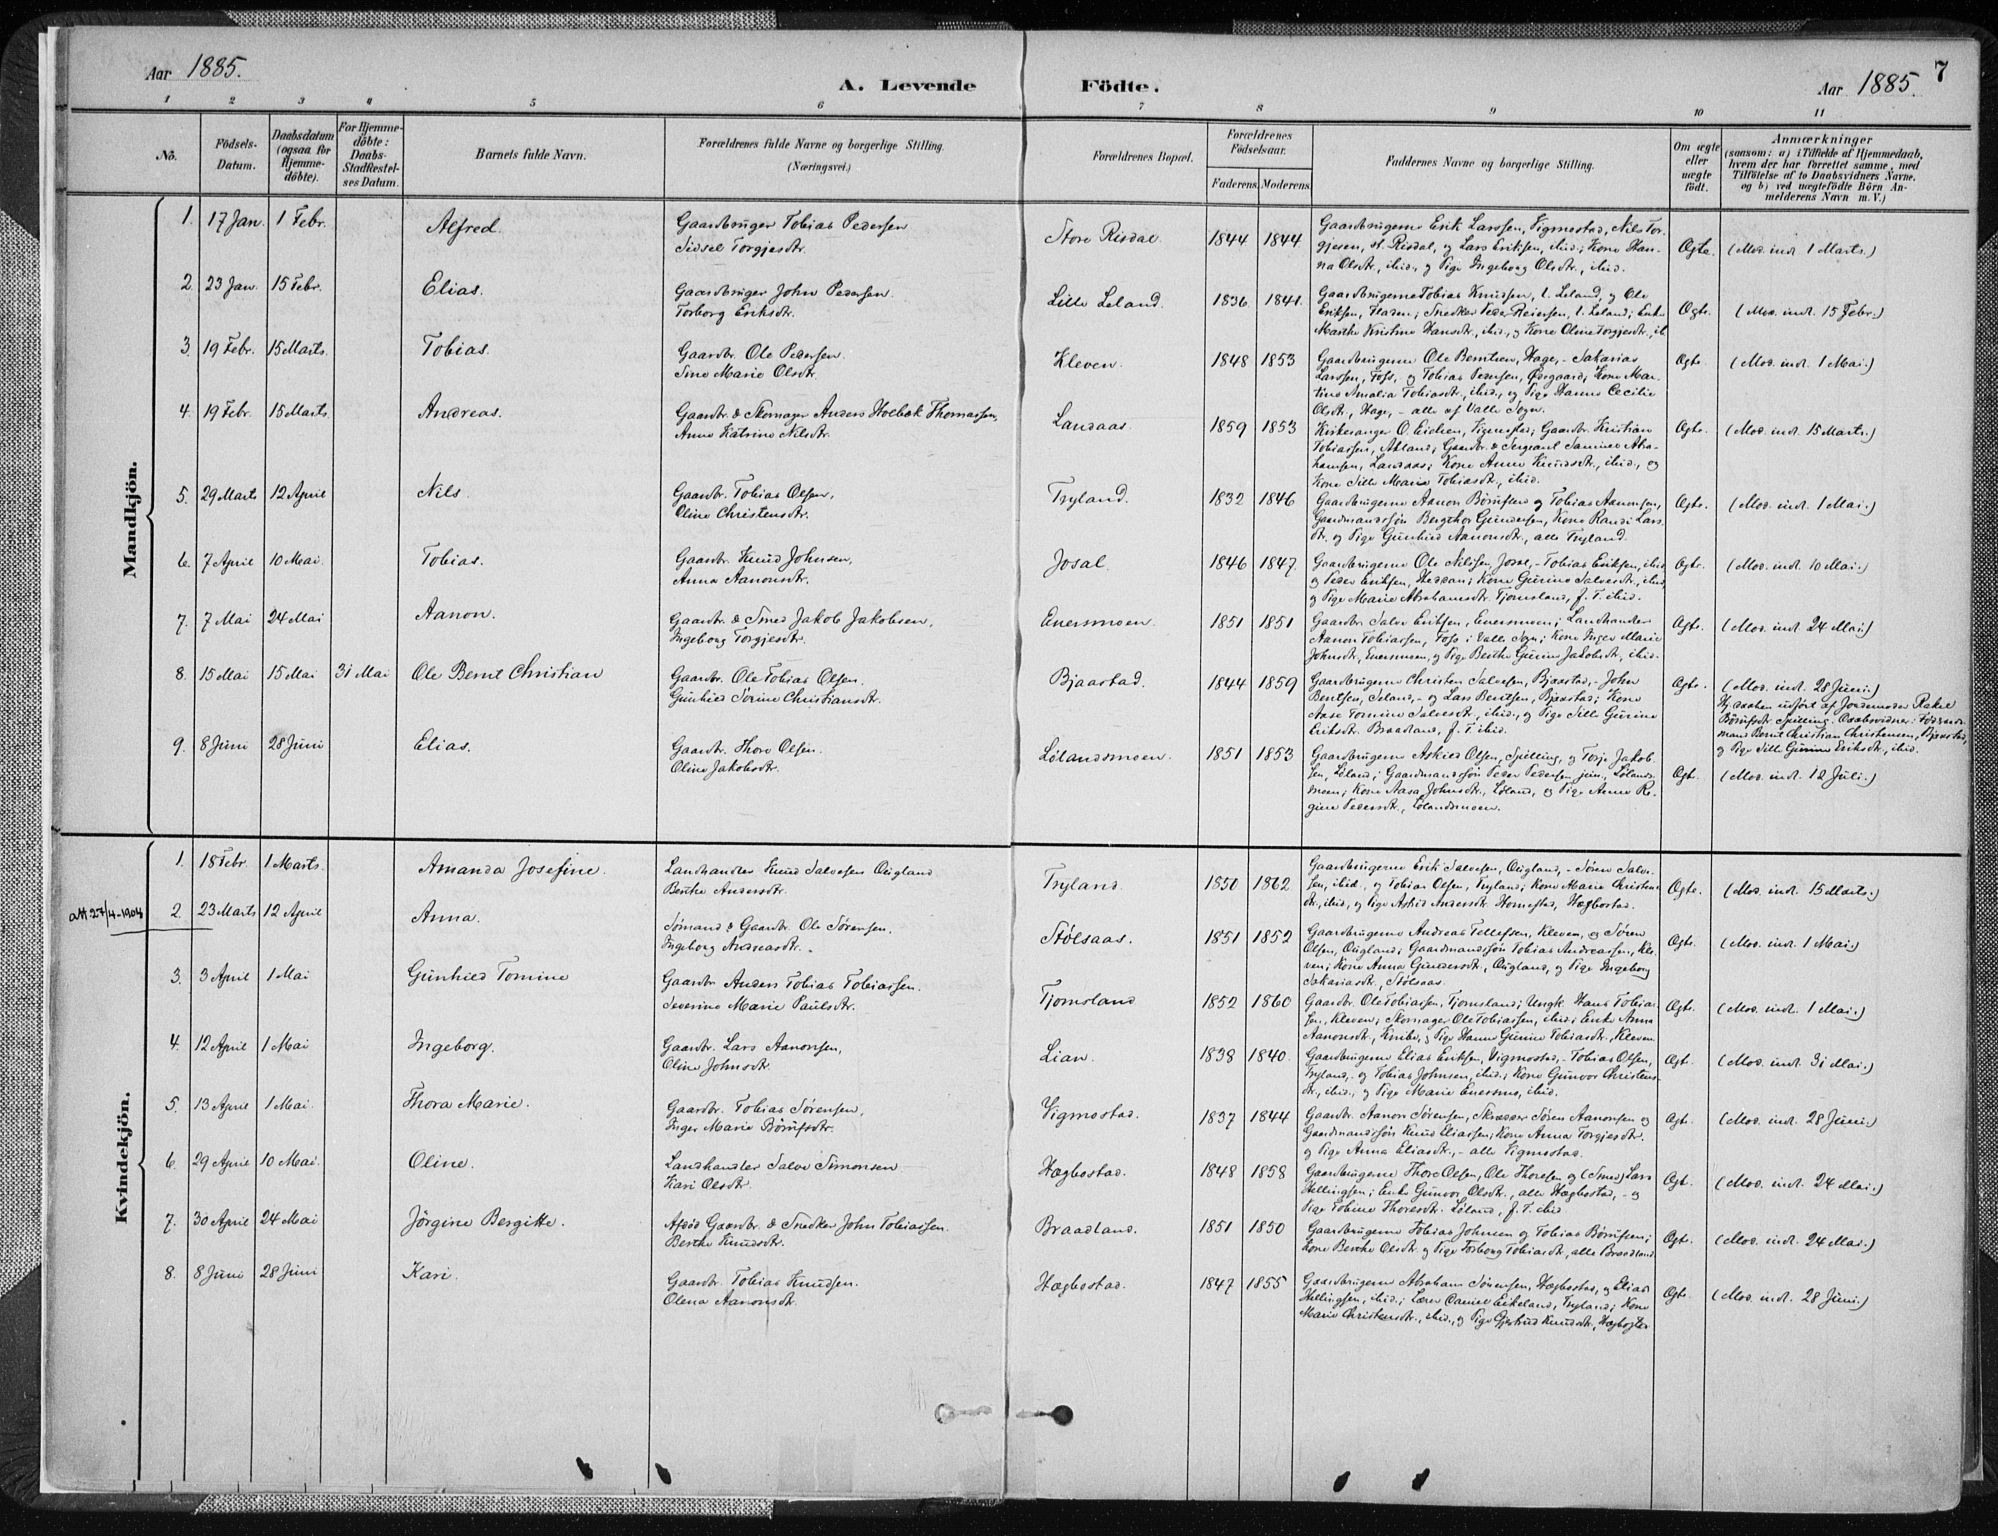 Aar 1885.
A. Levende
Födte.
Aar 1885.
7
1 2 3 4 5 6 7 8 9 10 11
No.
Födsels-
Datum.
Daabsdatum
(ogsaa for
Hjemme-
döbte).
For Hjemme-
döbte:
Daabs-
Stadfæstel-
ses Datum.
Barnets fulde Navn.
Forældrenes fulde Navne og borgerlige Stilling.
(Næringsvei.)
Forældrenes Bopæl.
Forældrenes
Födselsaar.
Faderens. Moderens.
Faddernes Navne og borgerlige Stilling.
Om ægte
eller
uægte
födt.
Anmærkninger
(saasom: a) i Tilfælde af Hjemmedaab,
hvem der har forrettet samme, med
Tilföielse af to Daabsvidners Navne,
og b) ved uægtefödte Börn An-
melderens Navn m. V.)
Mandkjön.
1. 17 Jan. 1 Febr. Alfred.
Gaardbruger Tobias Pedersen
Sidsel Torgjesdtr.
Store Risdal. 1844 1844
Gaardbrugerne Erik Larssen, Vigmostad, Nils Tor-
gjesen, St. Risdal, og Lars Eriksen, ibid.; Kone Han-
na Olsdtr., ibid., og Pige Ingeborg Olsdtr., ibid.
Ægte. (Mod. indl. 1 Marts.)
2. 23 Jan. 15 Febr. Elias.
Gaardbruger John Pedersen.
Torborg Eriksdtr.
Lille Leland. 1836 1841.
Gaardbrugerne Tobias Knudsen, l. Leland, og Ole
Eriksen, Fladen; Snedker Peder Reiersen, l. Leland; Enke
Marthe Kristine Hansdtr., ibid., og Kone Oline Torgjesdtr., ib
Ægte. (Mod. indl. 15 Febr.)
3. 19 Febr. 15 Marts Tobias.
Gaardbr. Ole Pedersen.
Sine Marie Olsdtr.
Kleven. 1848 1853
Gaardbrugerne Ole Berntsen, Hage, - Sakarias
Larssen, Foss, og Tobias Pedersen, Ødegaard; Kone Mar-
tine Amalia Tobiasdtr., ibid., og Pige Hanne Cecilie
Olsdtr., Hage, - alle af Valle Sogn.
Ægte. (Mod. indl. 1 Mai.)
4. 19 Febr. 15 Marts Andreas.
Gaardbr. & Skomager Anders Holbæk Thomassen,
Anne Katrine Nilsdtr.
Landaas. 1859 1853
Kirkesanger O. Eielsen, Vigmostad; Gaardbr. Kristian
Tobiassen, Aaland; Gaardbr. & Sergeant Samuel Abra-
hamsen, Landaas; Kone Anne Knudsdtr., ibid., og
Kone Sille Marie Tobiasdtr., ibid.
Ægte. (Mod. indl. 15 Marts.)
5. 29 Marts 12 April Nils.
Gaardbr. Tobias Olsen,
Oline Christensdtr.
Tryland. 1832 1846
Gaardbrugerne Aanon Börufsen og Tobias Aanonsen,
Gaardmandssön Bergthor Gundersen, Kone Randi Lars-
dtr. og Pige Gunhild Aanonsdtr., alle Tryland.
Ægte. (Mod. indl. 1 Mai.)
6. 7 April 10 Mai. Tobias.
Gaardbr. Knud Johnsen,
Anna Aanonsdtr.
Josal. 1846 1847
Gaardbrugerne Ole Nilssen, Josal, - Tobias Eriksen, ibid.,
og Peder Eriksen, Heddan; Kone Gurine Salvesdtr., ibid.,
og Pige Marie Abrahamsdtr. Tjomsland, f. T. ibid.
Ægte. (Mod. indl. 10 Mai.)
7. 7 Mai 24 Mai Aanon.
Gaardbr. & Smed Jakob Jakobsen,
Ingeborg Torgjesdtr.
Enersmoen. 1851 1851
Gaardbr. Salve Eriksen, Enersmoen; Landhandler
Aanon Tobiassen, Foss i Valle Sogn; Kone Inger Marie
Johnsdtr., Enersmoen, og Pige Berthe Gurine Jakobsdtr., ibid.
Ægte. (Mod. indl. 24 Mai.)
8. 15 Mai 15 Mai 31 Mai Ole Bernt Christian
Gaardbr. Ole Tobias Olsen.
Gunhild Serine Christiansdtr.
Bjaastad. 1844 1859
Gaardbrugerne Christen Salvesen, Bjaastad, - John
Berntsen, Leland, - og Lars Berntsen, Bjaastad; Kone
Aase Tomine Salvesdtr., ibid., og Pige Sille Gurine
Eriksdtr. Braadland, f. T. ibid.
Ægte. (Mod. indl. 28 Juni.)
Hj.daaben udfört af Jordemoder Rakel
Börufsdtr. Spilling. Daabsvidner: Födsmd.
mand Bernt Christian Christensen, Bjaastad,
og Pige Sille Gurine Eriksdtr., ibid.
9. 8 Juni 28 Juni Elias.
Gaardbr. Thore Olsen.
Oline Jakobsdtr.
Lölandsmoen. 1851 1853
Gaardbrugerne Askild Olsen, Spilling, og Terje Jakob-
sen, Löland; Gaardmandssön Peder Pedersen jun., Lölands-
moen; Kone Aasa Johnsdtr., Löland, og Pige Anne Re-
gine Pedersdtr., Lölandsmoen.
Ægte. (Mod. indl. 12 Juli.)
Kvindekjön.
1. 18 Febr. 1 Marts. Amanda Josefine.
Landhandler Knud Salvesen Øigland
Berthe Andersdtr.
Tryland. 1850 1862
Gaardbrugerne Erik Salvesen, Øigland, - Sören Salve-
sen, ibid., og Tobias Olsen, Tryland; Kone Marie Christens-
dtr., ibid., og Pige Astrid Andersdtr. Homestad, Hægbostad.
Ægte. (Mod. indl. 15 Marts.)
att 27/4-1904
2. 23 Marts 12 April Anna.
Sömand & Gaardbr. Ole Sörensen.
Ingeborg Andreasdtr.
Stölsaas. 1851 1852
Gaardbrugerne Andreas Tellefsen, Kleven, og Sören
Olsen, Øigland; Gaardmandssön Tobias Andreassen, Kle-
ven; Kone Anna Gundersdtr., Øigland, og Pige Ingeborg
Sakariasdtr., Stölsaas.
Ægte. (Mod. indl. 1 Mai.)
3. 3 April 1 Mai Gunhild Tomine
Gaardbr. Anders Tobias Tobiassen.
Severine Marie Paulsdtr.
Tjomsland 1852 1860
Gaardbr. Ole Tobiassen, Tjomsland; Ungk. Hans Tobias-
sen, Kleven; Skomager Ole Tobiassen, ibid.; Enke Anna
Aanonsdtr., Knibe, og Pige Hanne Gurine Tobiasdtr., Kleven.
Ægte. (Mod. indl. 1 Mai.)
4. 12 April 1 Mai Ingeborg.
Gaardbr. Lars Aanonsen,
Oline Johnsdtr.
Lian. 1838 1840.
Gaardbrugerne Elias Eriksen, Vigmostad, - Tobias Olsen,
Tryland, - og Tobias Johnsen, ibid.; Kone Gunvor Christens-
dtr., ibid., og Pige Marie Enersmo, ibid.
Ægte. (Mod. indl. 31 Mai.)
5. 13 April 1 Mai. Thora Marie.
Gaardbr. Tobias Sörensen,
Inger Marie Börufsdtr.
Vigmostad. 1837 1844
Gaardbr. Aanon Sörensen, Skrædder Sören Aanonsen og
Gaardmandssön Knud Eliassen; Kone Anna Torgjesdtr.
og Pige Anna Eliasdtr., - alle Vigmostad.
Ægte. (Mod. indl. 28 Juni.)
6. 29 April 10 Mai. Oline.
Landhandler Salve Simonsen
Kari Olsdtr.
Hægbostad. 1848 1858
Gaardbrugerne Thore Olsen, Ole Thoresen og (Smed) Lars
Hellingsen; Enke Gunvor Olsdtr., alle Hægbostad, - og
Pige Tobine Thoresdtr. Löland, f. T. ibid.
Ægte. (Mod. indl. 24 Mai.)
7. 30 April 24 Mai Jörgine Bergitte.
Afsöd Gaardbr. & Snedker John Tobiassen.
Berthe Knudsdtr.
Braadland. 1851 1850
Gaardbrugerne Tobias Johnsen og Tobias Börufsen;
Kone Berthe Olsdtr. og Pige Torborg Tobiasdtr., alle Braadland.
Ægte. (Mod. indl. 24 Mai.)
8. 8 Juni 28 Juni Kari.
Gaardbr. Tobias Knudsen.
Olena Aanonsdtr.
Hægbostad. 1847 1855
Gaardbrugerne Abraham Sörensen, Hægbostad, og Elias
Hellingsen, ibid.; Lærer Daniel Eikeland, Tryland; Kone
Marie Christensdtr., ibid., og Pige Gjertrud Knudsdtr., Hægbostad
Ægte. (Mod. indl. 28 Juni.)